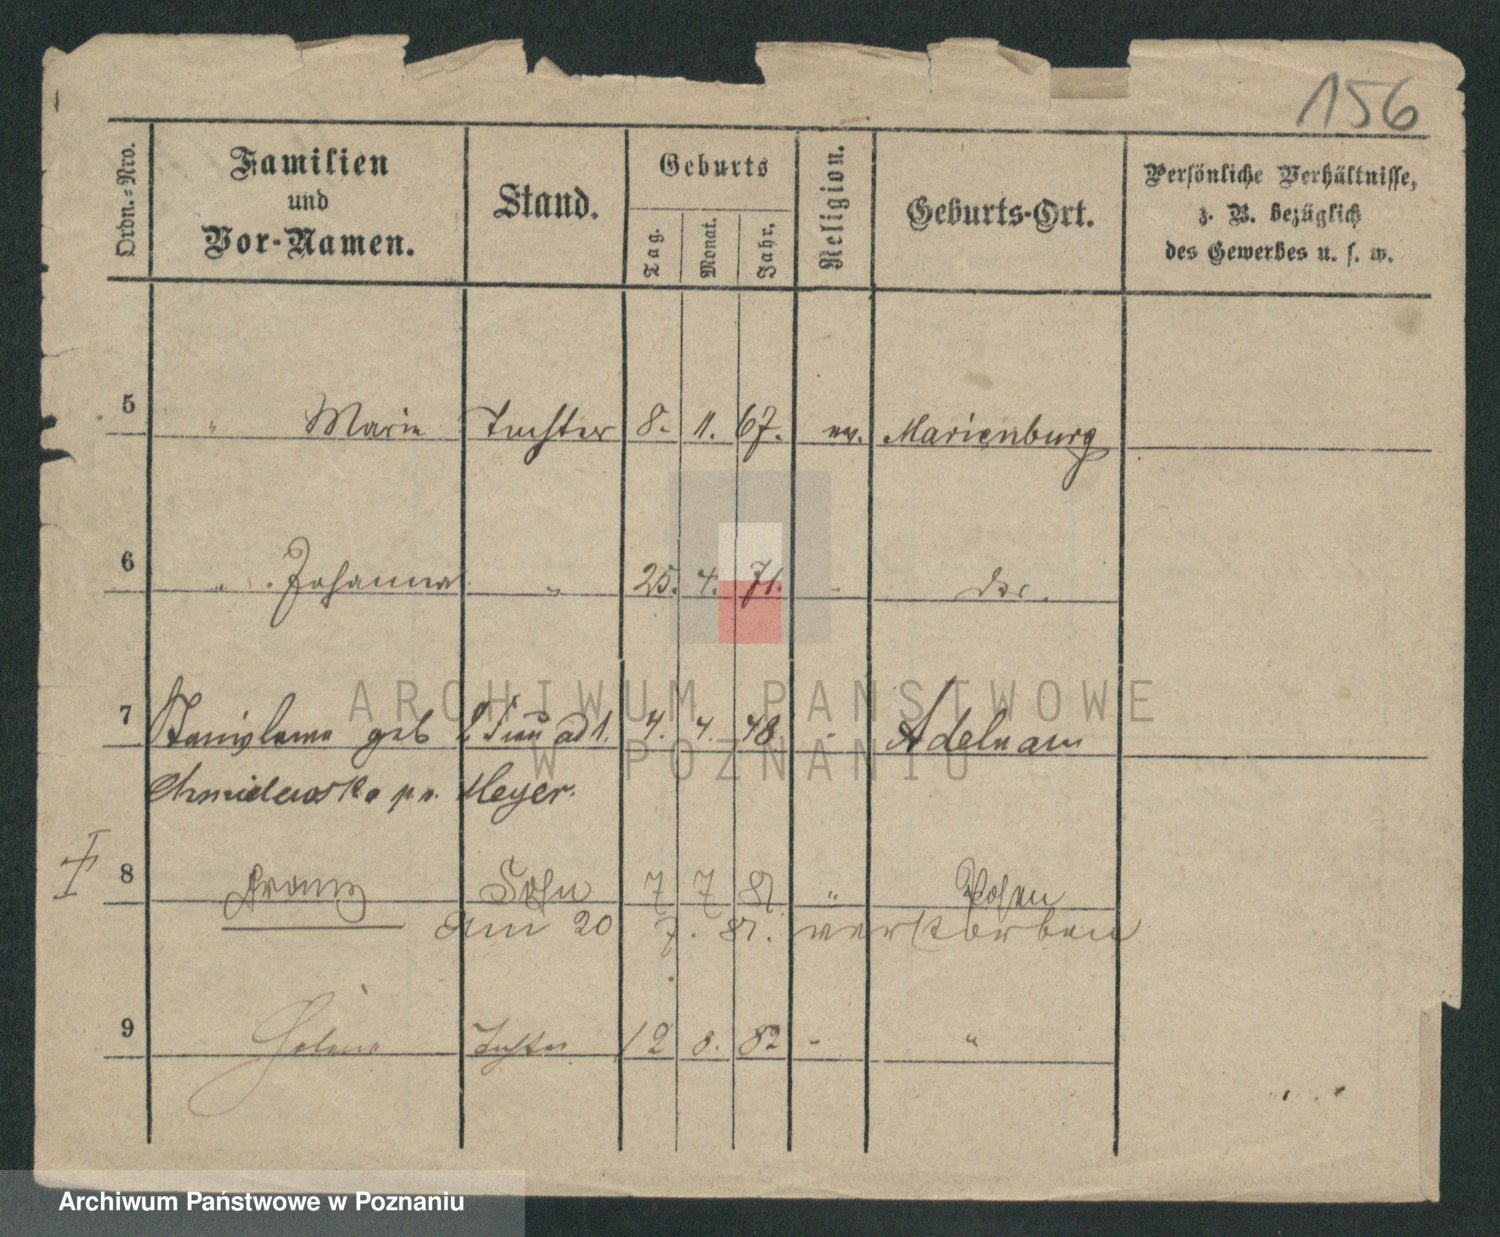 156
Ordn.-Nro.
Familien
und
Vor-Namen.
Stand.
Geburts
Tag.
Monat.
Jahr.
Religion.
Geburts-Ort.
Persönliche Verhältnisse,
z. B. bezüglich
des Gewerbes u. s. w.
5 " Marie Tochter 8. 11. 67. ev. Marienburg
6 " Johanna " 25. 4. 71. - do.
7 Stanislawa geb 2 Frau ad 1. 4. 4. 48. -
Chmielewska pr. Meyer.
8 Franz Sohn 7 7 81 " Posen
am 20 7. 81. verstorben
9 Helene Tochter 12 8. 82 - "
ARCHIWUM PAŃSTWOWE
W POZNANIU
Archiwum Państwowe w Poznaniu